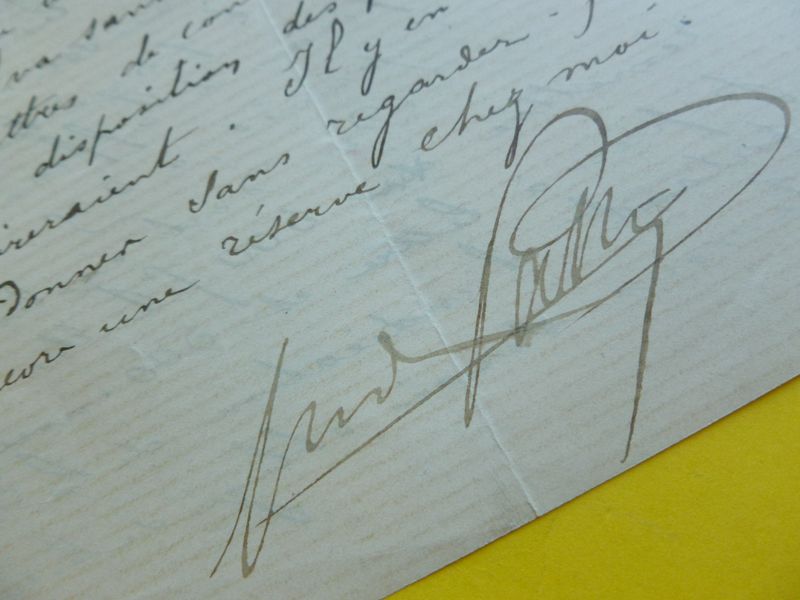 va san
ttres de con
disposition des
ireraient. Il y en
donner sans regarder.
core une réserve chez moi.